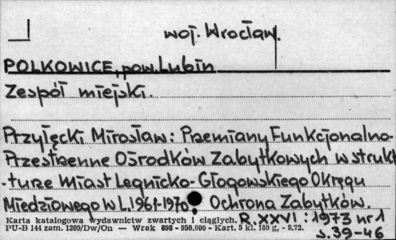 woj. Wrocław.
POLKOWICE, pow. Lubin
Zespół miejski.
Przyłęcki Mirosław: Przemiany Funkcjonalno-
Przestrzenne Ośrodków Zabytkowych w struk-
-turze Miast Legnicko-Głogowskiego Okręgu
Miedziowego w L. 1961-1970. Ochrona Zabytków.
R. XXVI : 1973 nr 1
s. 39-46
Karta katalogowa wydawnictw zwartych i ciągłych.
PU-B 144 zam. 1269/Dw/On — Wrak 898 - 950.000 - Kart. 5 kl. 180 g, - 8.72.